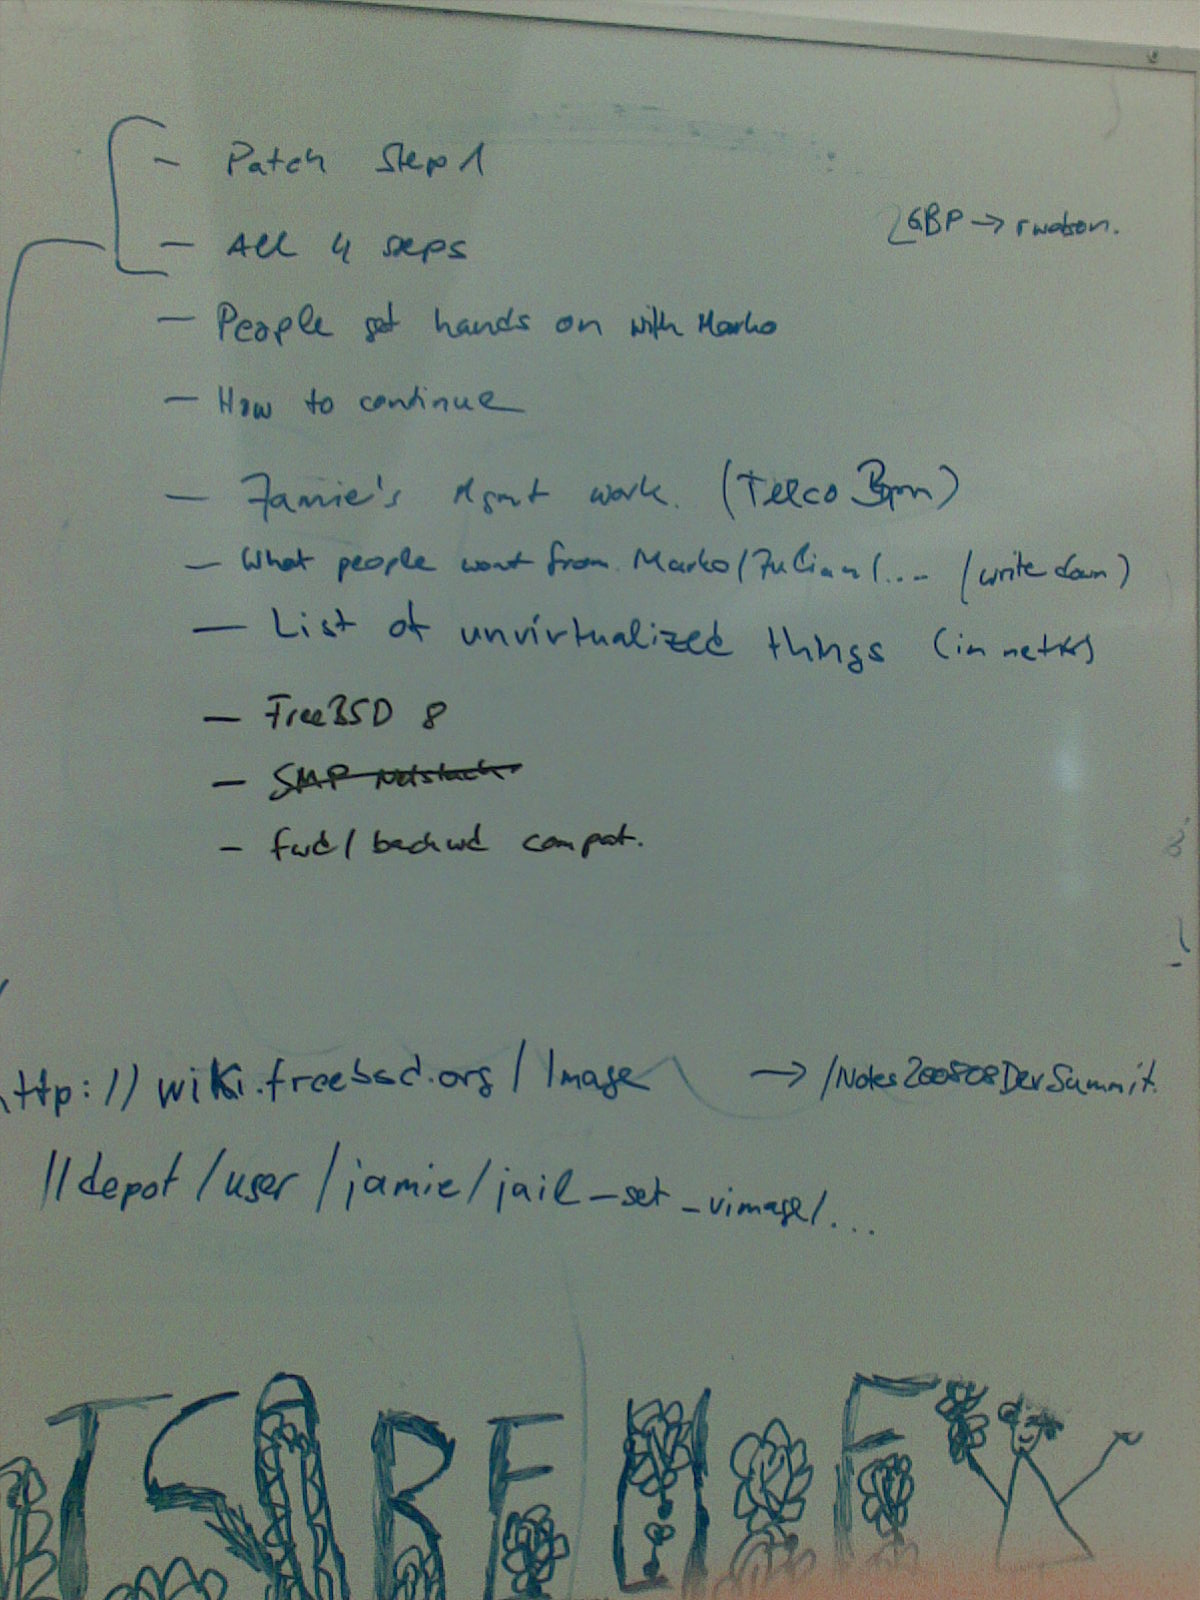 - Patch Step 1
- All 4 steps
GBP → rwatson.
- People get hands on with Marko
- How to continue
- Jamie's Mgmt work. (Telco Bpm)
- What people want from Marko/Julian/... (write down)
- List of unvirtualized things (in net*)
- FreeBSD 8
- SMP Netstack
- fwd/backwd compat.
http://wiki.freebsd.org/Image → /Notes200808DevSummit.
//depot/user/jamie/jail_set_vimage/...